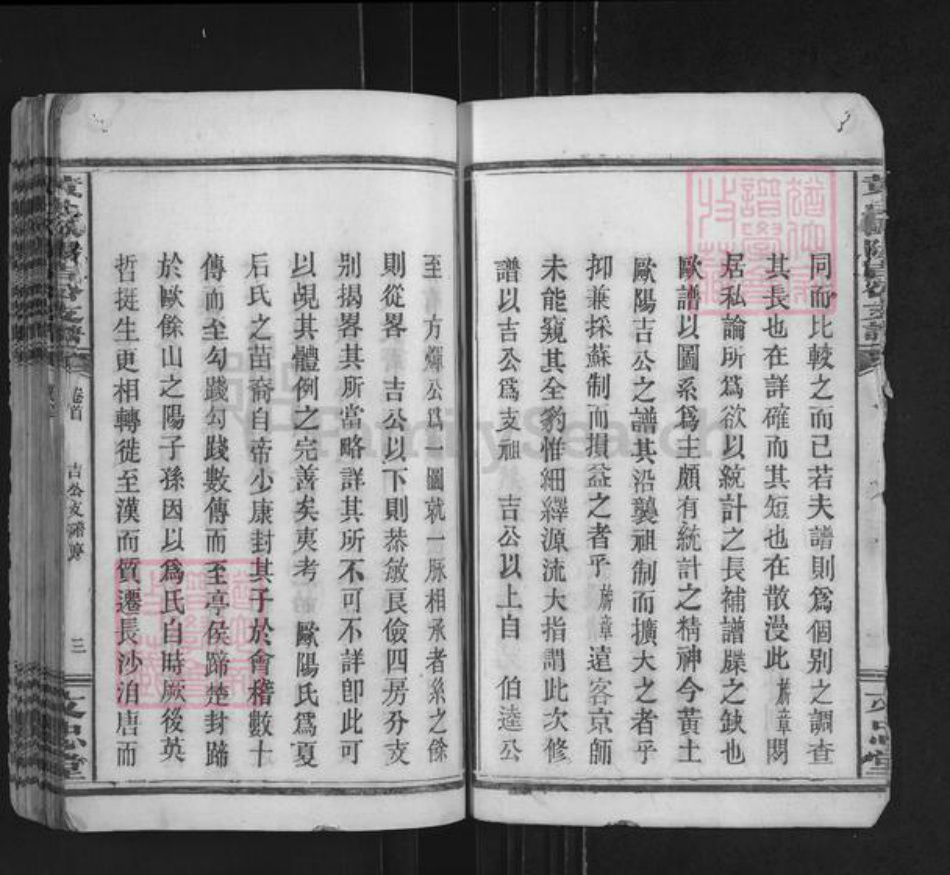 同而比較之而已若夫譜則爲個別之調查
其長也在詳確而其短也在散漫此蕭章閎
居私論所爲欲以統計之長補譜牒之缺也
歐譜以圖系爲主頗有統計之精神今黃土
歐陽吉公之譜其沿襲祖制而擴大之者乎
抑兼採蘇制而損益之者乎蕭章遠客京師
未能窺其全豹惟細繹源流大指謂此次修
譜以吉公爲支祖 吉公以上自 伯逵公
至 方 公爲一圖就一脈相承者系之餘
則從畧 吉公以下則恭敏良儉四房分支
别揭畧其所當略詳其所不可不詳卽此可
以覘其體例之完善矣夷考 歐陽氏爲夏
后氏之苗裔自帝少康封其子於會稽數十
傳而至勾踐勾踐數傳而至亭侯蹄楚封蹄
於歐餘山之陽子孫因以爲氏自時厥後英
哲挺生更相轉徙至漢而質遷長沙洎唐而
卷首
吉公支譜序
三
文忠堂
FamilySearch